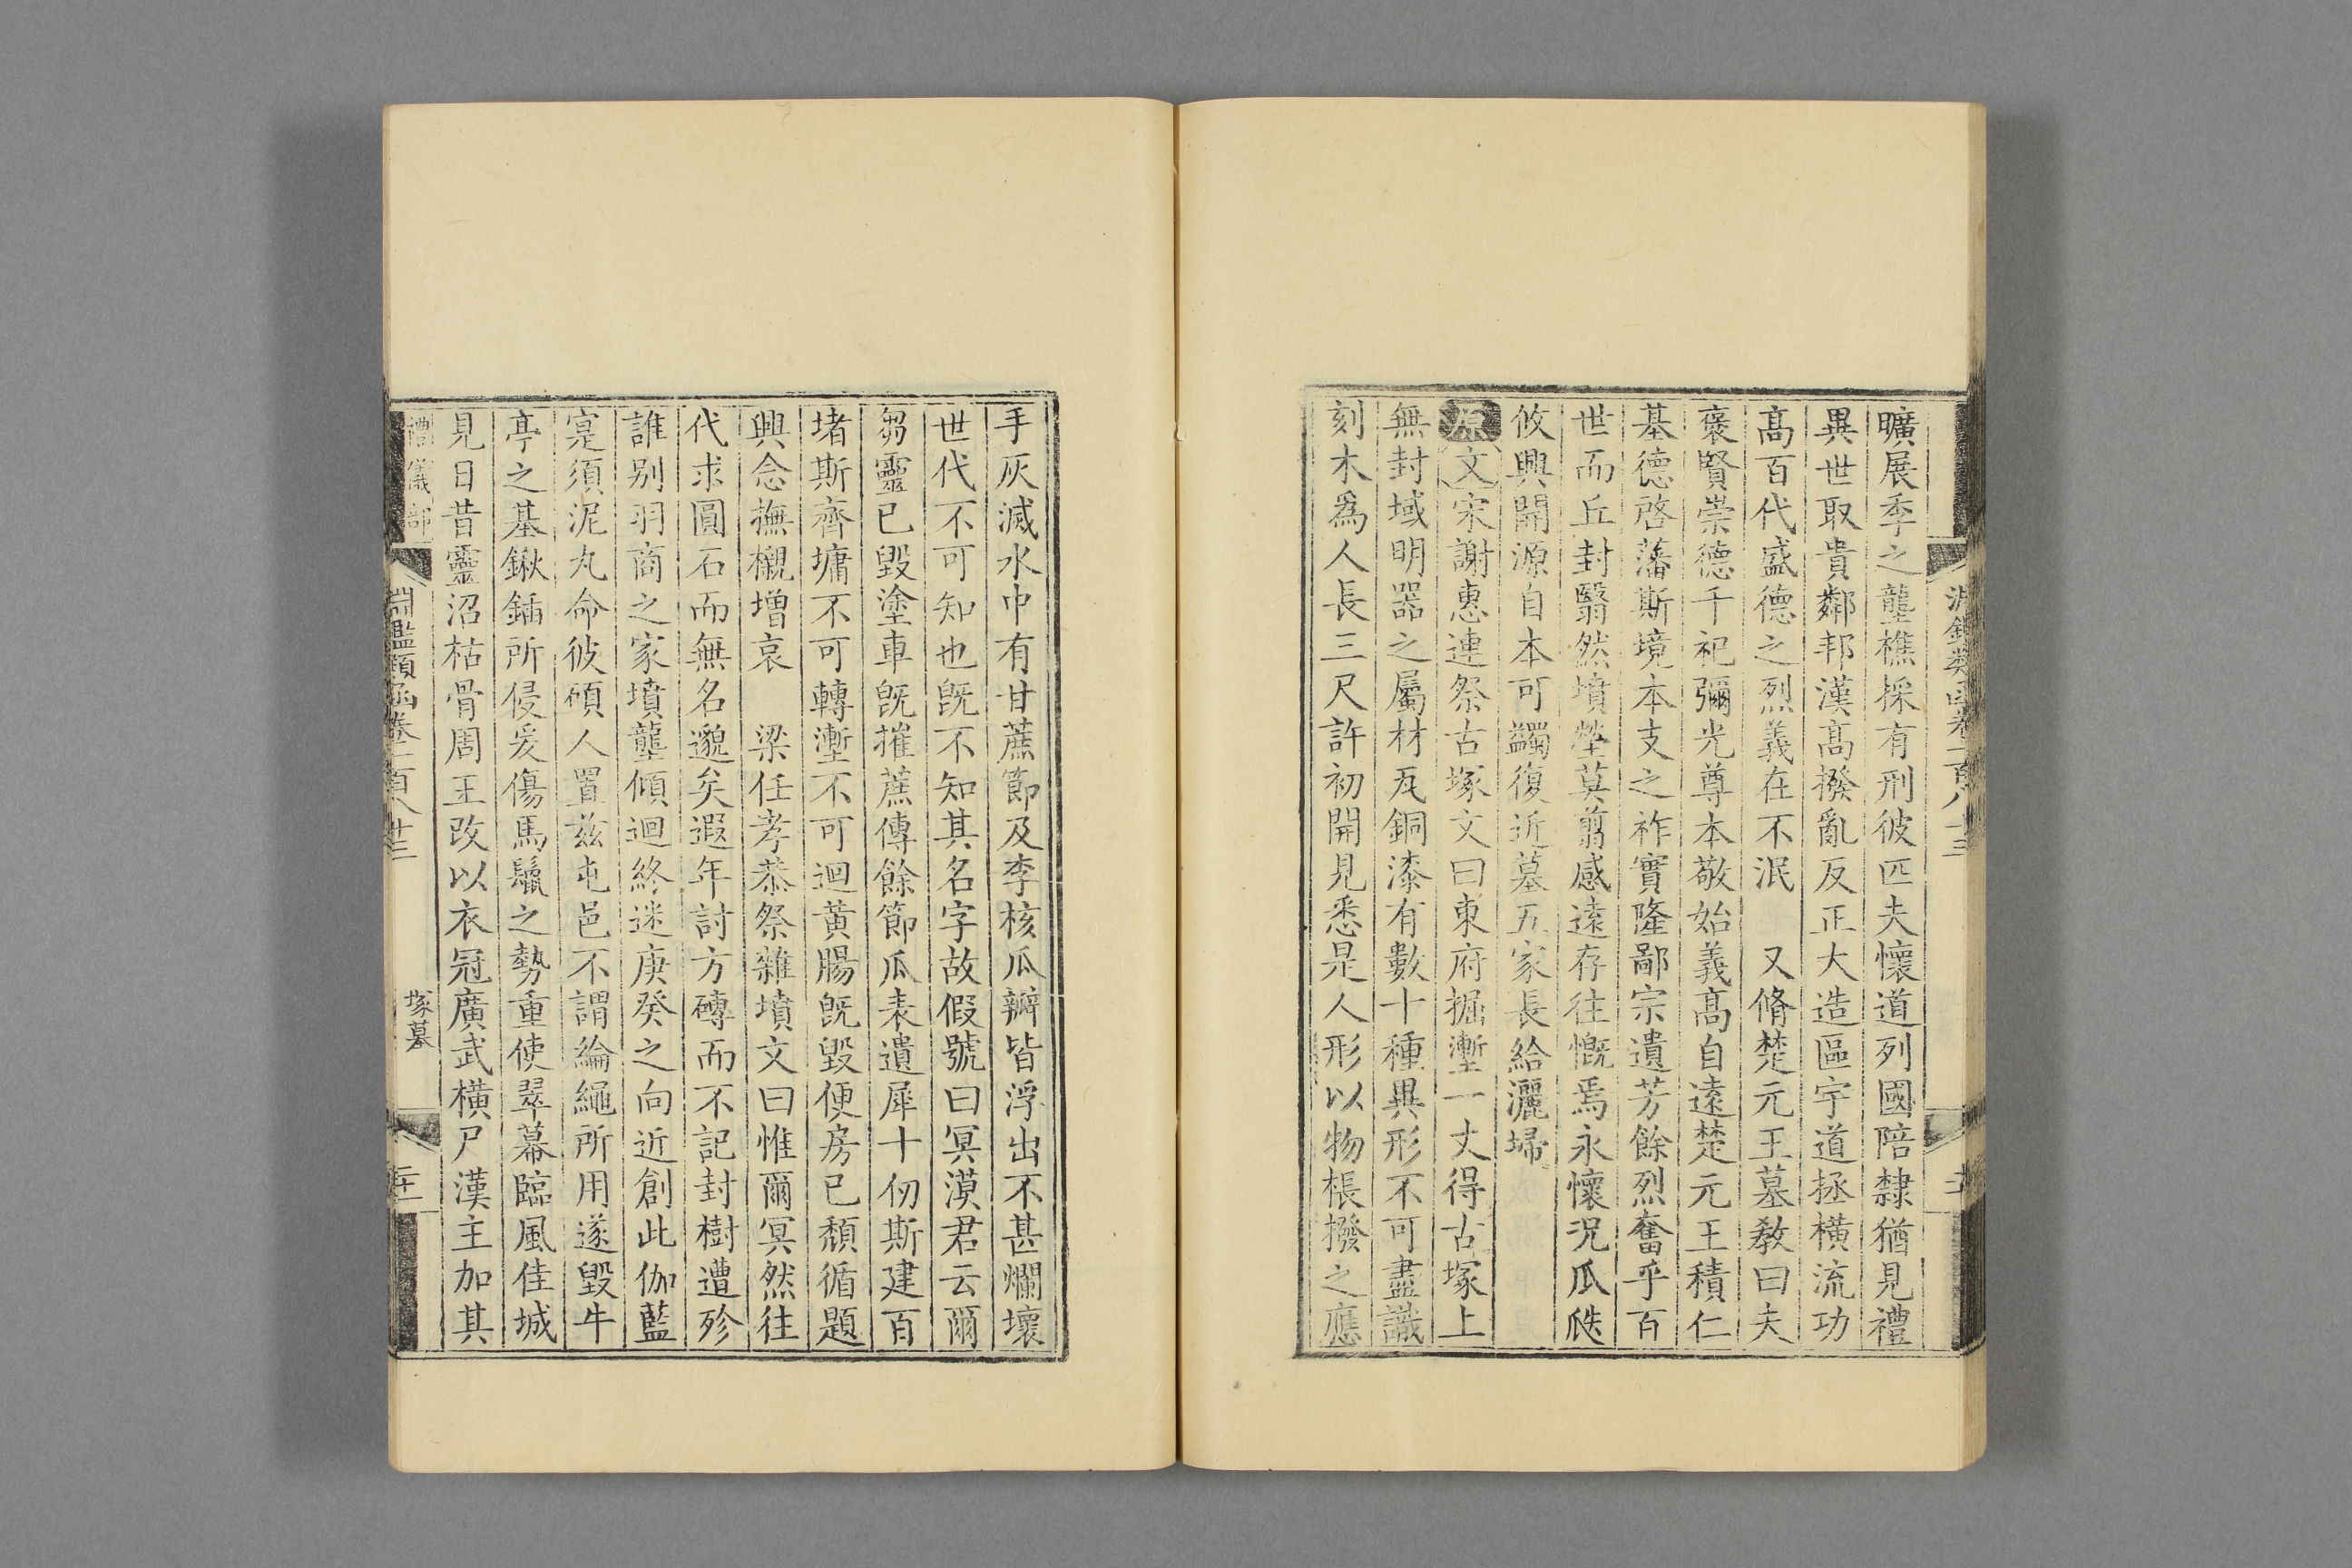 曠展季之壟樵採有刑彼匹夫懷道列國陪隸猶見禮
異世取貴鄰邦漢高撥亂反正大造區宇道拯橫流功
高百代盛德之烈義在不泯　又脩楚元王墓教曰夫
褒賢崇德千祀彌光尊本敬始義高自遠楚元王積仁
基德啓藩斯境本支之祚實隆鄙宗遺芳餘烈奮乎百
世而丘封翳然墳塋莫翦感遠存往慨焉永懷況瓜瓞
攸興開源自本可蠲復近墓五家長給灑埽
原文宋謝惠連祭古塚文曰東府掘壍一丈得古塚上
無封域明器之屬材瓦銅漆有數十種異形不可盡識
刻木爲人長三尺許初開見悉是人形以物棖撥之應
手灰滅水中有甘蔗節及李核瓜瓣皆浮出不甚爛壞
世代不可知也旣不知其名字故假號曰冥漠君云爾
芻靈已毀塗車旣摧蔗傳餘節瓜表遺犀十仞斯建百
堵斯齊墉不可轉壍不可迴黃腸旣毀便房已頹循題
興念撫櫬增哀　梁任孝恭祭雜墳文曰惟爾冥然往
代求圓石而無名邈矣遐年討方磚而不記封樹遭殄
誰別羽商之家墳壟傾迴終迷庚癸之向近創此伽藍
寔須泥丸命彼碩人置茲屯邑不謂綸繩所用遂毀牛
亭之基鍬鍤所侵爰傷馬鬣之勢重使翠幕臨風佳城
見日昔靈沼枯骨周王改以衣冠廣武橫尸漢主加其
禮儀部
淵鑑類函卷一百八十三
塚墓